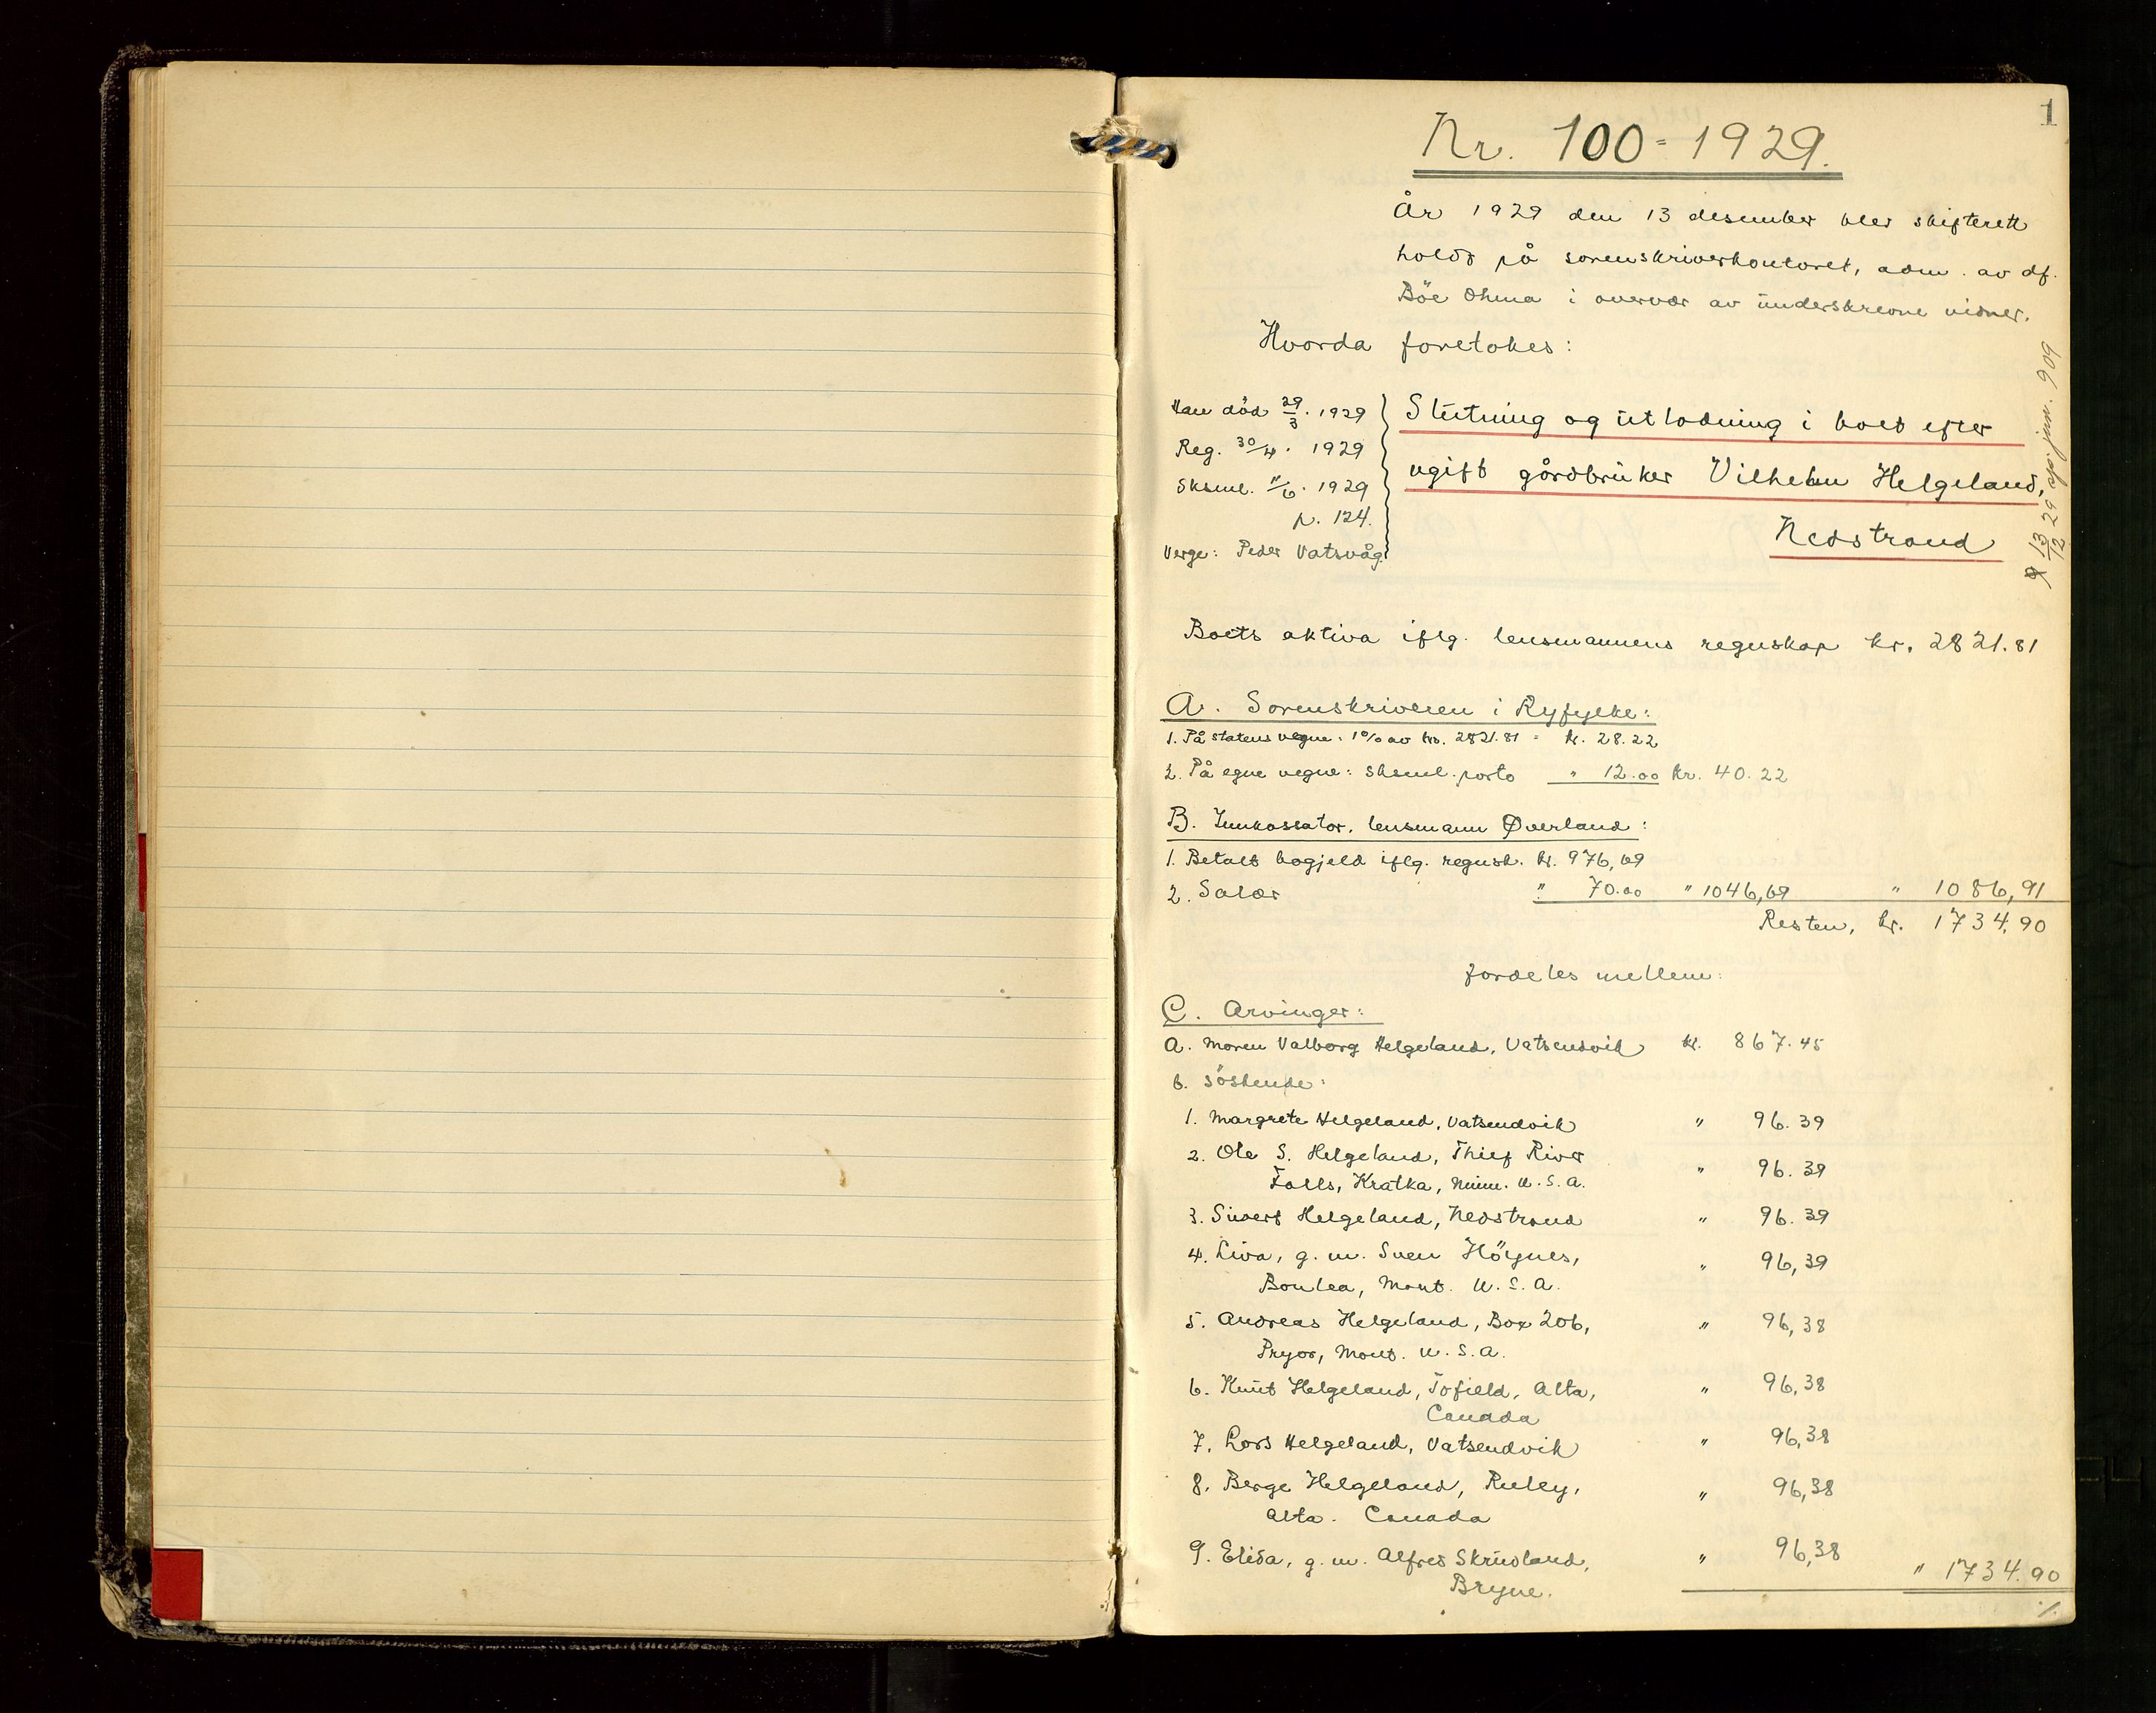 1
Nr. 100 = 1929.
År 1929 den 13 desember blev skifterett
holdt på sorenskriverkontoret, adm. av df.
Böe Ohma i overvær av underskrevne vidner.
Hvorda foretokes:
Han död 29/3. 1929
Reg. 30/4. 1929
Sksml. 11/6. 1929
p. 124.
Verge: Peder Vatsvåg
Slutning og utlodning i boet efter
ugift gårdbruker Vilhelm Helgeland,
Nedstrand
13/12 29 jnr. 909
Boets aktiva iflg. lensmannens regnskap kr. 2821.81
A. Sorenskriveren i Ryfylke:
1. På statens vegne: 1% av kr. 2821.81 = kr. 28.22
2. På egne vegne: sksml. porto " 12.00 kr. 40.22
B. Innkassator, lensmann Överland:
1. Betalt bogjeld iflg. regnsk. kr. 976,69
2. Salær " 70.00 " 1046,69 " 1086,91
Resten, kr. 1734.90
fordeles mellem:
C. Arvinger:
a. Moren Valborg Helgeland, Vatsendvik kr. 867.45
b. söskende:
1. Margrete Helgeland, Vatsendvik " 96.39
2. Ole S. Helgeland, Thief River
Falls, Kratka, Minn. U.S.A. " 96.39
3. Sivert Helgeland, Nedstrand " 96.39
4. Liva, g. m. Sven Höynes,
Mont. U.S.A. " 96,39
5. Andreas Helgeland, Box 206,
Pryor, Mont. U.S.A. " 96,38
6. Knut Helgeland, Tofield, Alta,
Canada " 96,38
7. Lars Helgeland, Vatsendvik " 96,38
8. Berge Helgeland, Ruley,
Alta. Canada " 96,38
9. Elida, g. m. Alfred Skrudland,
Bryne. " 96,38 " 1734.90
./.